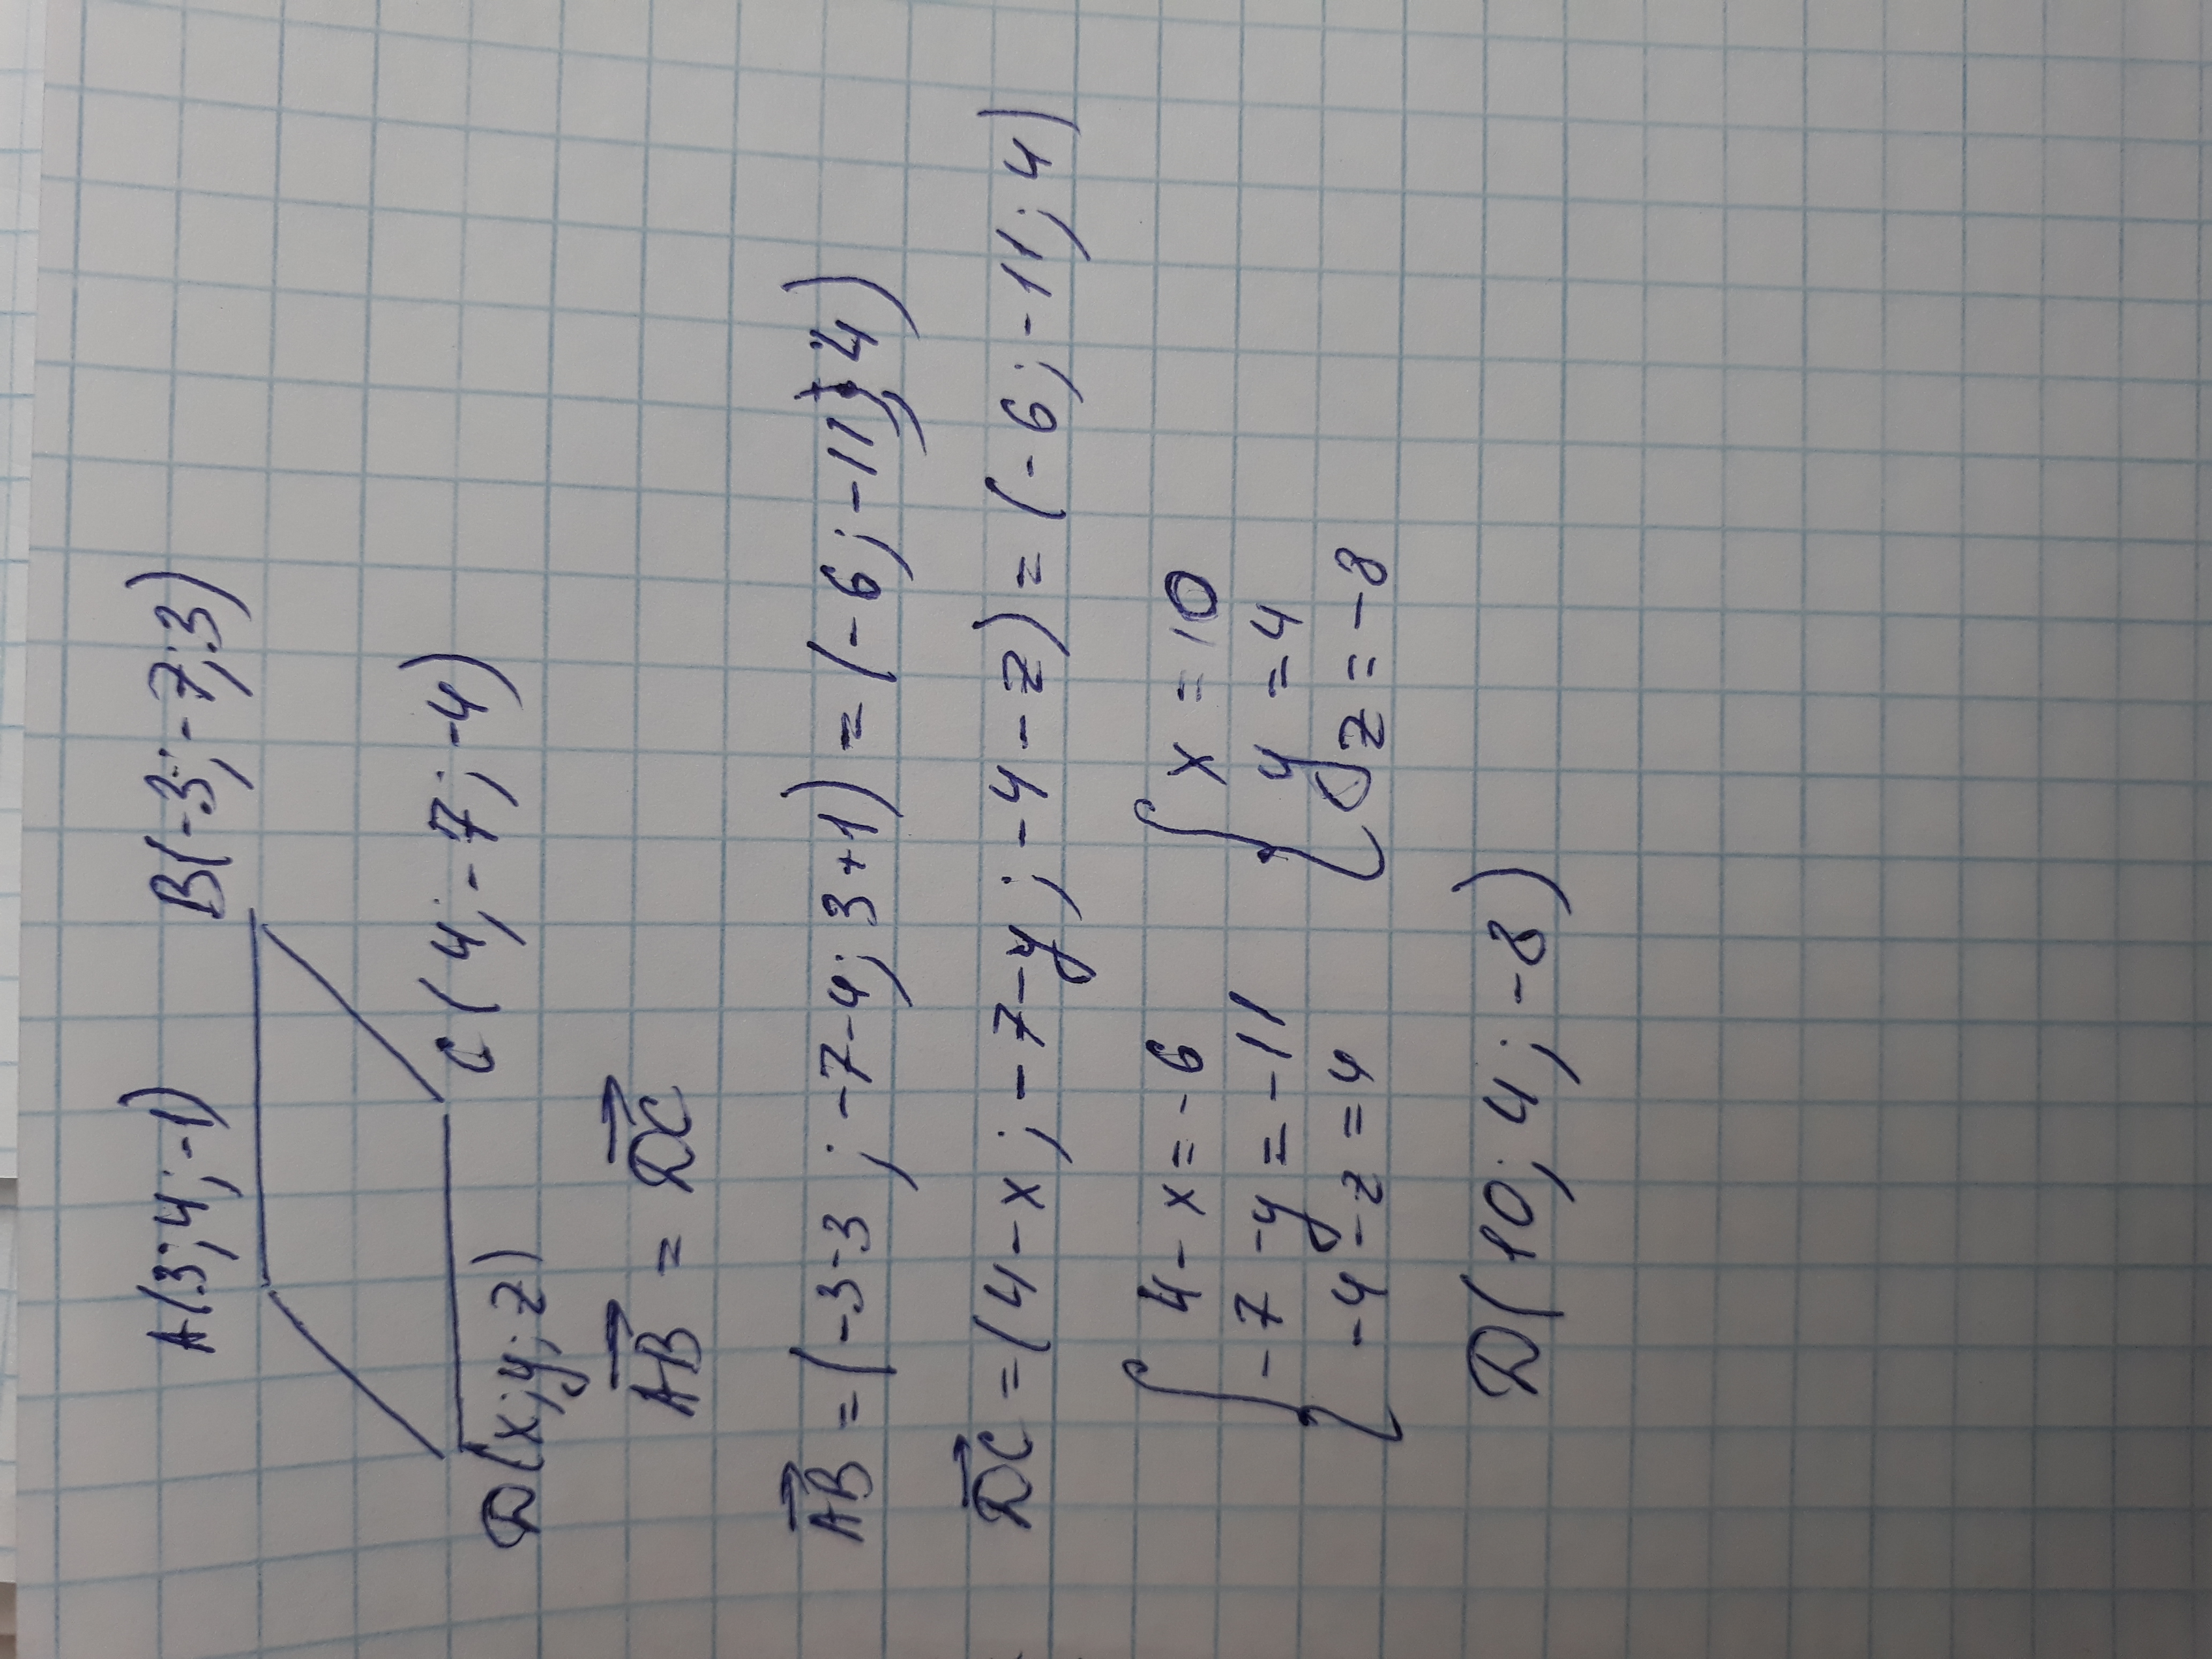 A(3;4;-1) B(-3;-7;3)
D(x;y;z) C(4;-7;-4)
AB = DC
AB = (-3-3; -7-4; 3+1) = (-6; -11; 4)
DC = (4-x; -7-y; -4-z) = (-6; -11; 4)
{ 4-x=-6 { x=10
-7-y=-11 y=4
-4-z=4 z=-8
D(10; 4; -8)